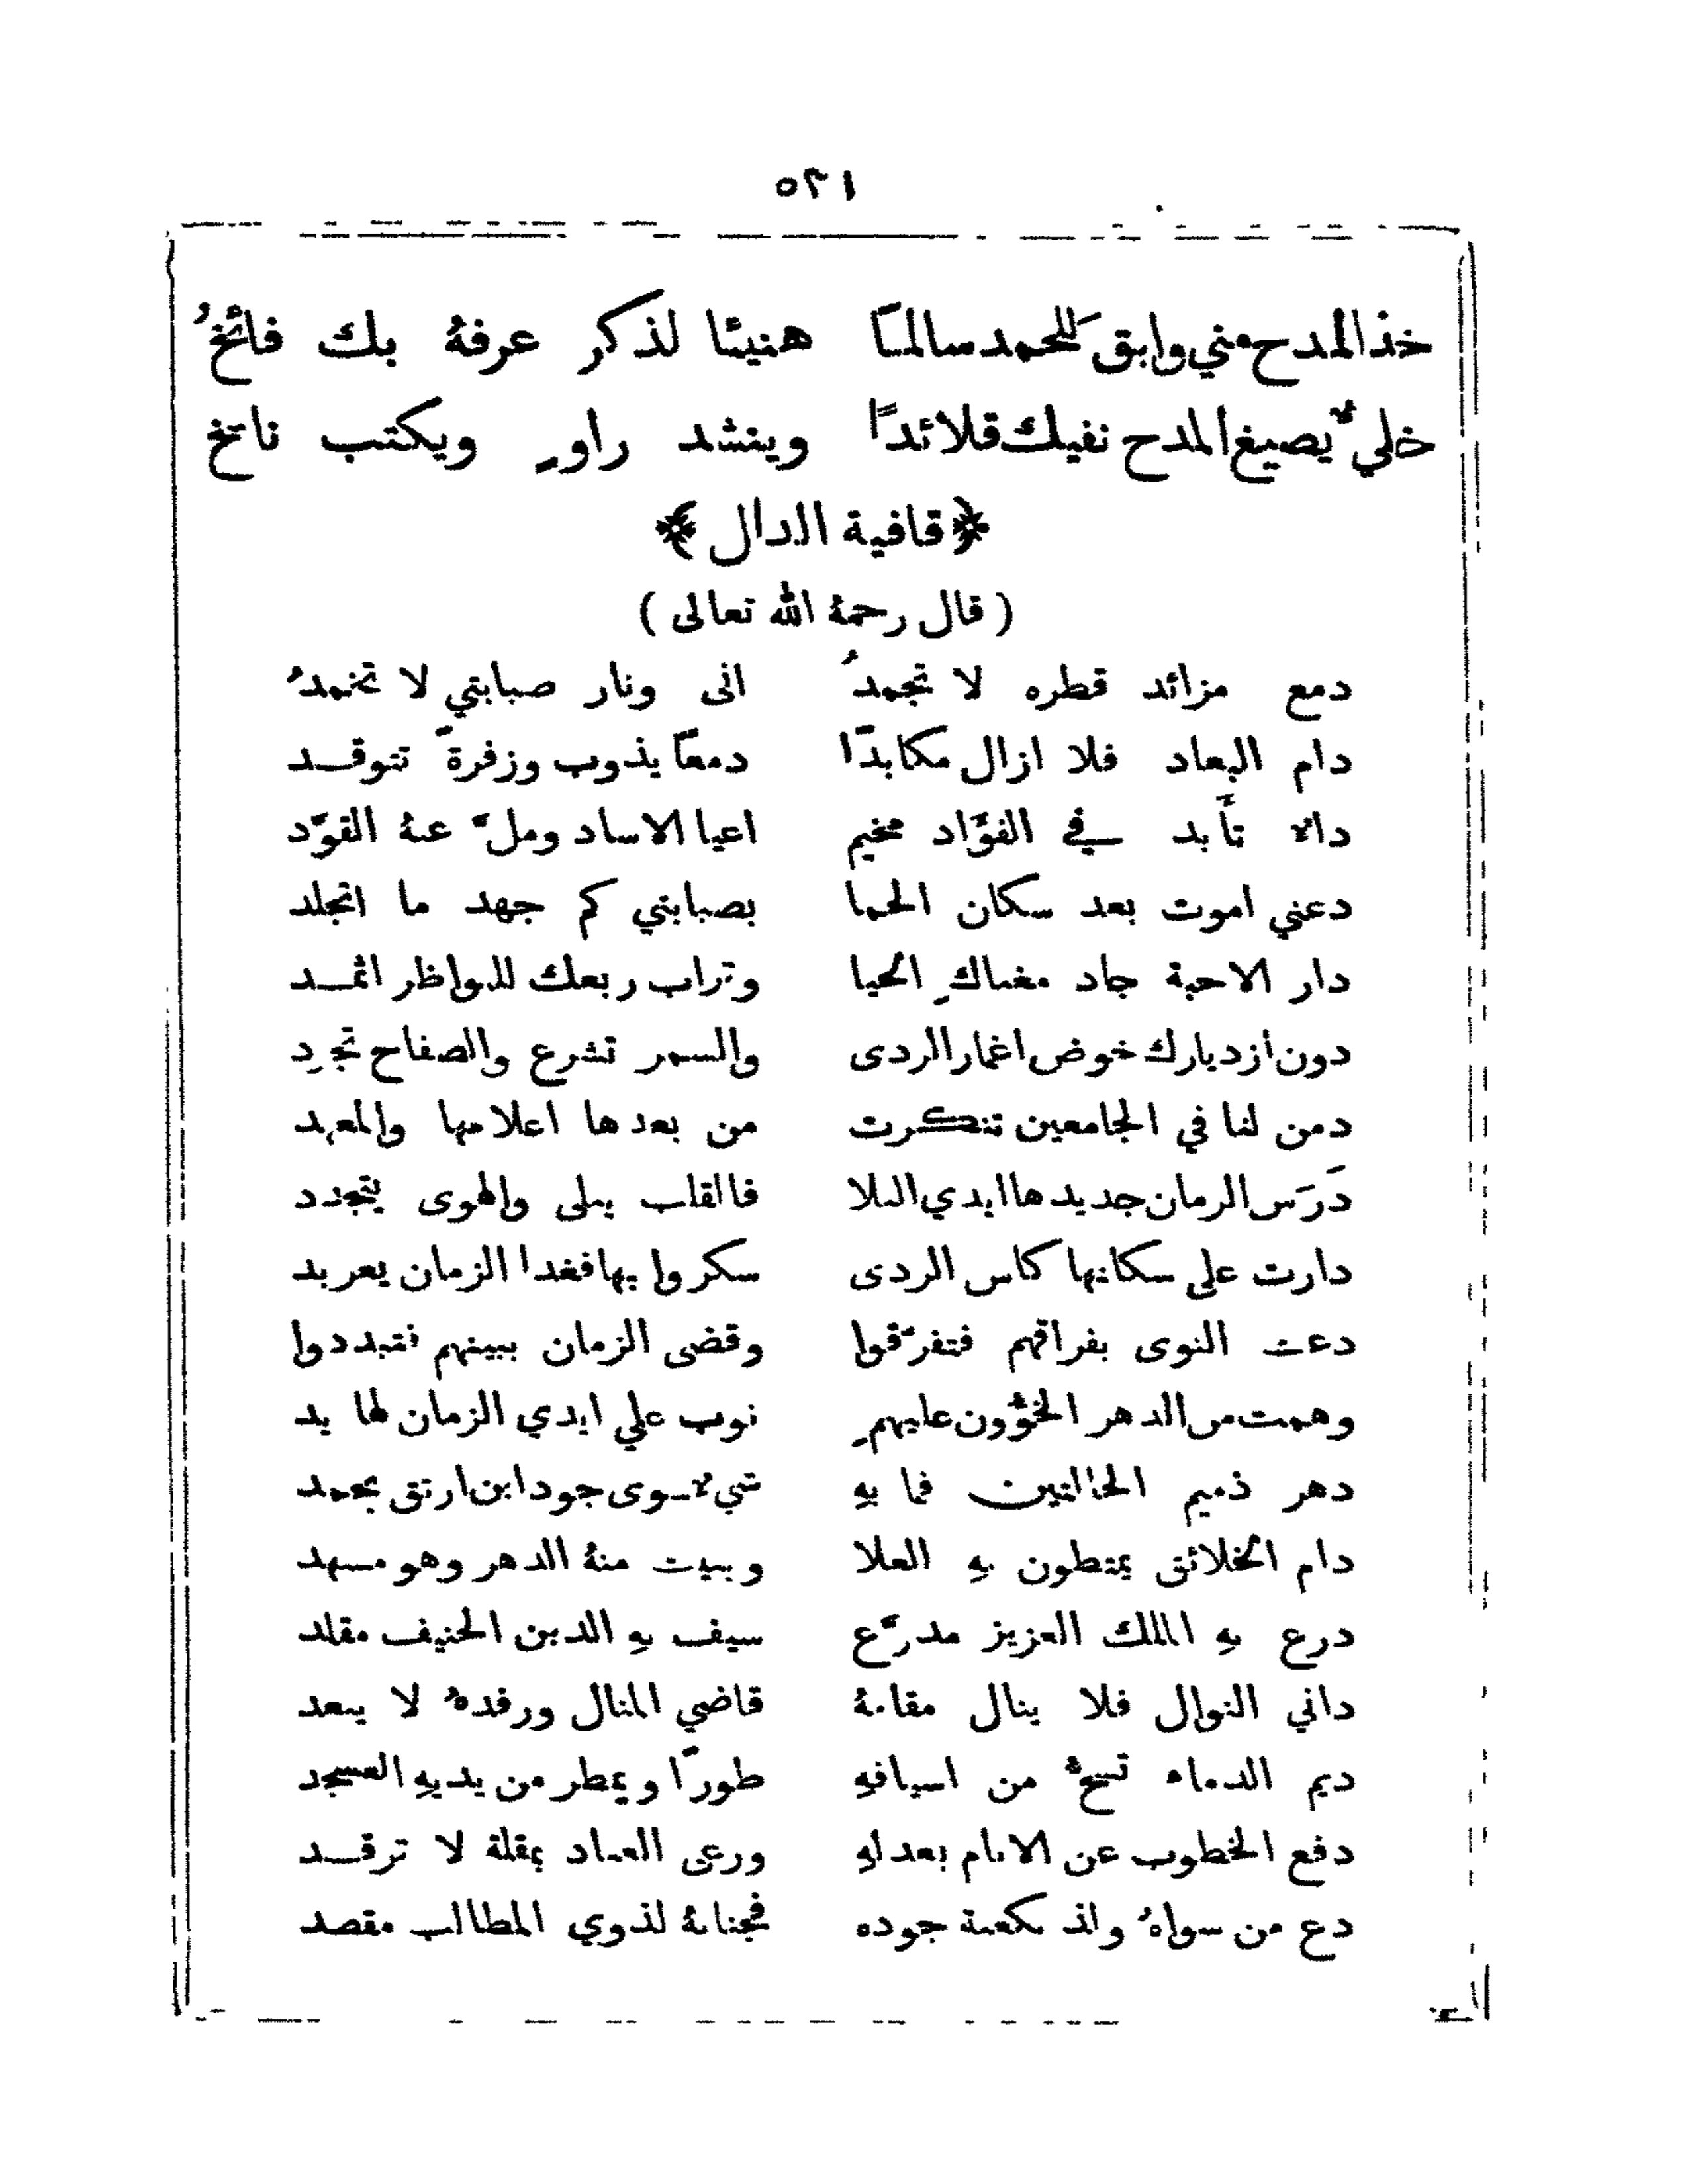 ٥٢١
خذ المدح مني وابق للحمد سالمًا هنيئا لذكر عرفهُ بك فائخُ
خليٌّ يصيغ المدح نفيك قلائدًا وينشد راوٍ ويكتب ناسخ
﴿ قافية الدال ﴾
( قال رحمهُ الله تعالى )
دمع مزائد قطره لا تجمدُ انى ونار صبابتي لا تخمدُ
دام البعاد فلا ازال مكابدًا دمعًا يذوب وزفرةً تتوقد
داء تأَبد في الفؤَاد مخيم اعيا الاساد وملَّ عنهُ العوَّد
دعني اموت بعد سكان الحما بصبابتي كم جهد ما اتجلد
دار الاحبة جاد مغناكِ الحيا وتراب ربعك للنواظر اثمد
دون ازديارك خوض اغمار الردى والسمر تشرع والصفاح تجرد
دمن لنا في الجامعين تنكرت من بعدها اعلامها والمعهد
دَرَس الزمان جديدها ايدي البلا فالقلب يبلى والهوى يتجدد
دارت على سكانها كاس الردى سكروا بها فغدا الزمان يعربد
دعت النوى بفراقهم فتفرَّقوا وقضى الزمان ببينهم فتبددوا
وهمت من الدهر الخؤُون عليهمِ نوب علي ايدي الزمان لها يد
دهر ذميم الحالتين فما بهِ شيءٌ سوى جود ابن ارتق يحمد
دام الخلائق يمتطون بهِ العلا ويبيت منهُ الدهر وهو مسهد
درع بهِ الملك العزيز مدرَّع سيف بهِ الدين الحنيف مقلد
داني النوال فلا ينال مقامهُ قاضي المنال ورفدهُ لا يبعد
ديم الدماء تسحُّ من اسيافهِ طورًا ويمطر من يديهِ العسجد
دفع الخطوب عن الانام بعدلهِ ورعى العباد بمقلة لا ترقد
دع من سواهُ ولذ بكعبة جوده فجنابهُ لذوي المطالب مقصد